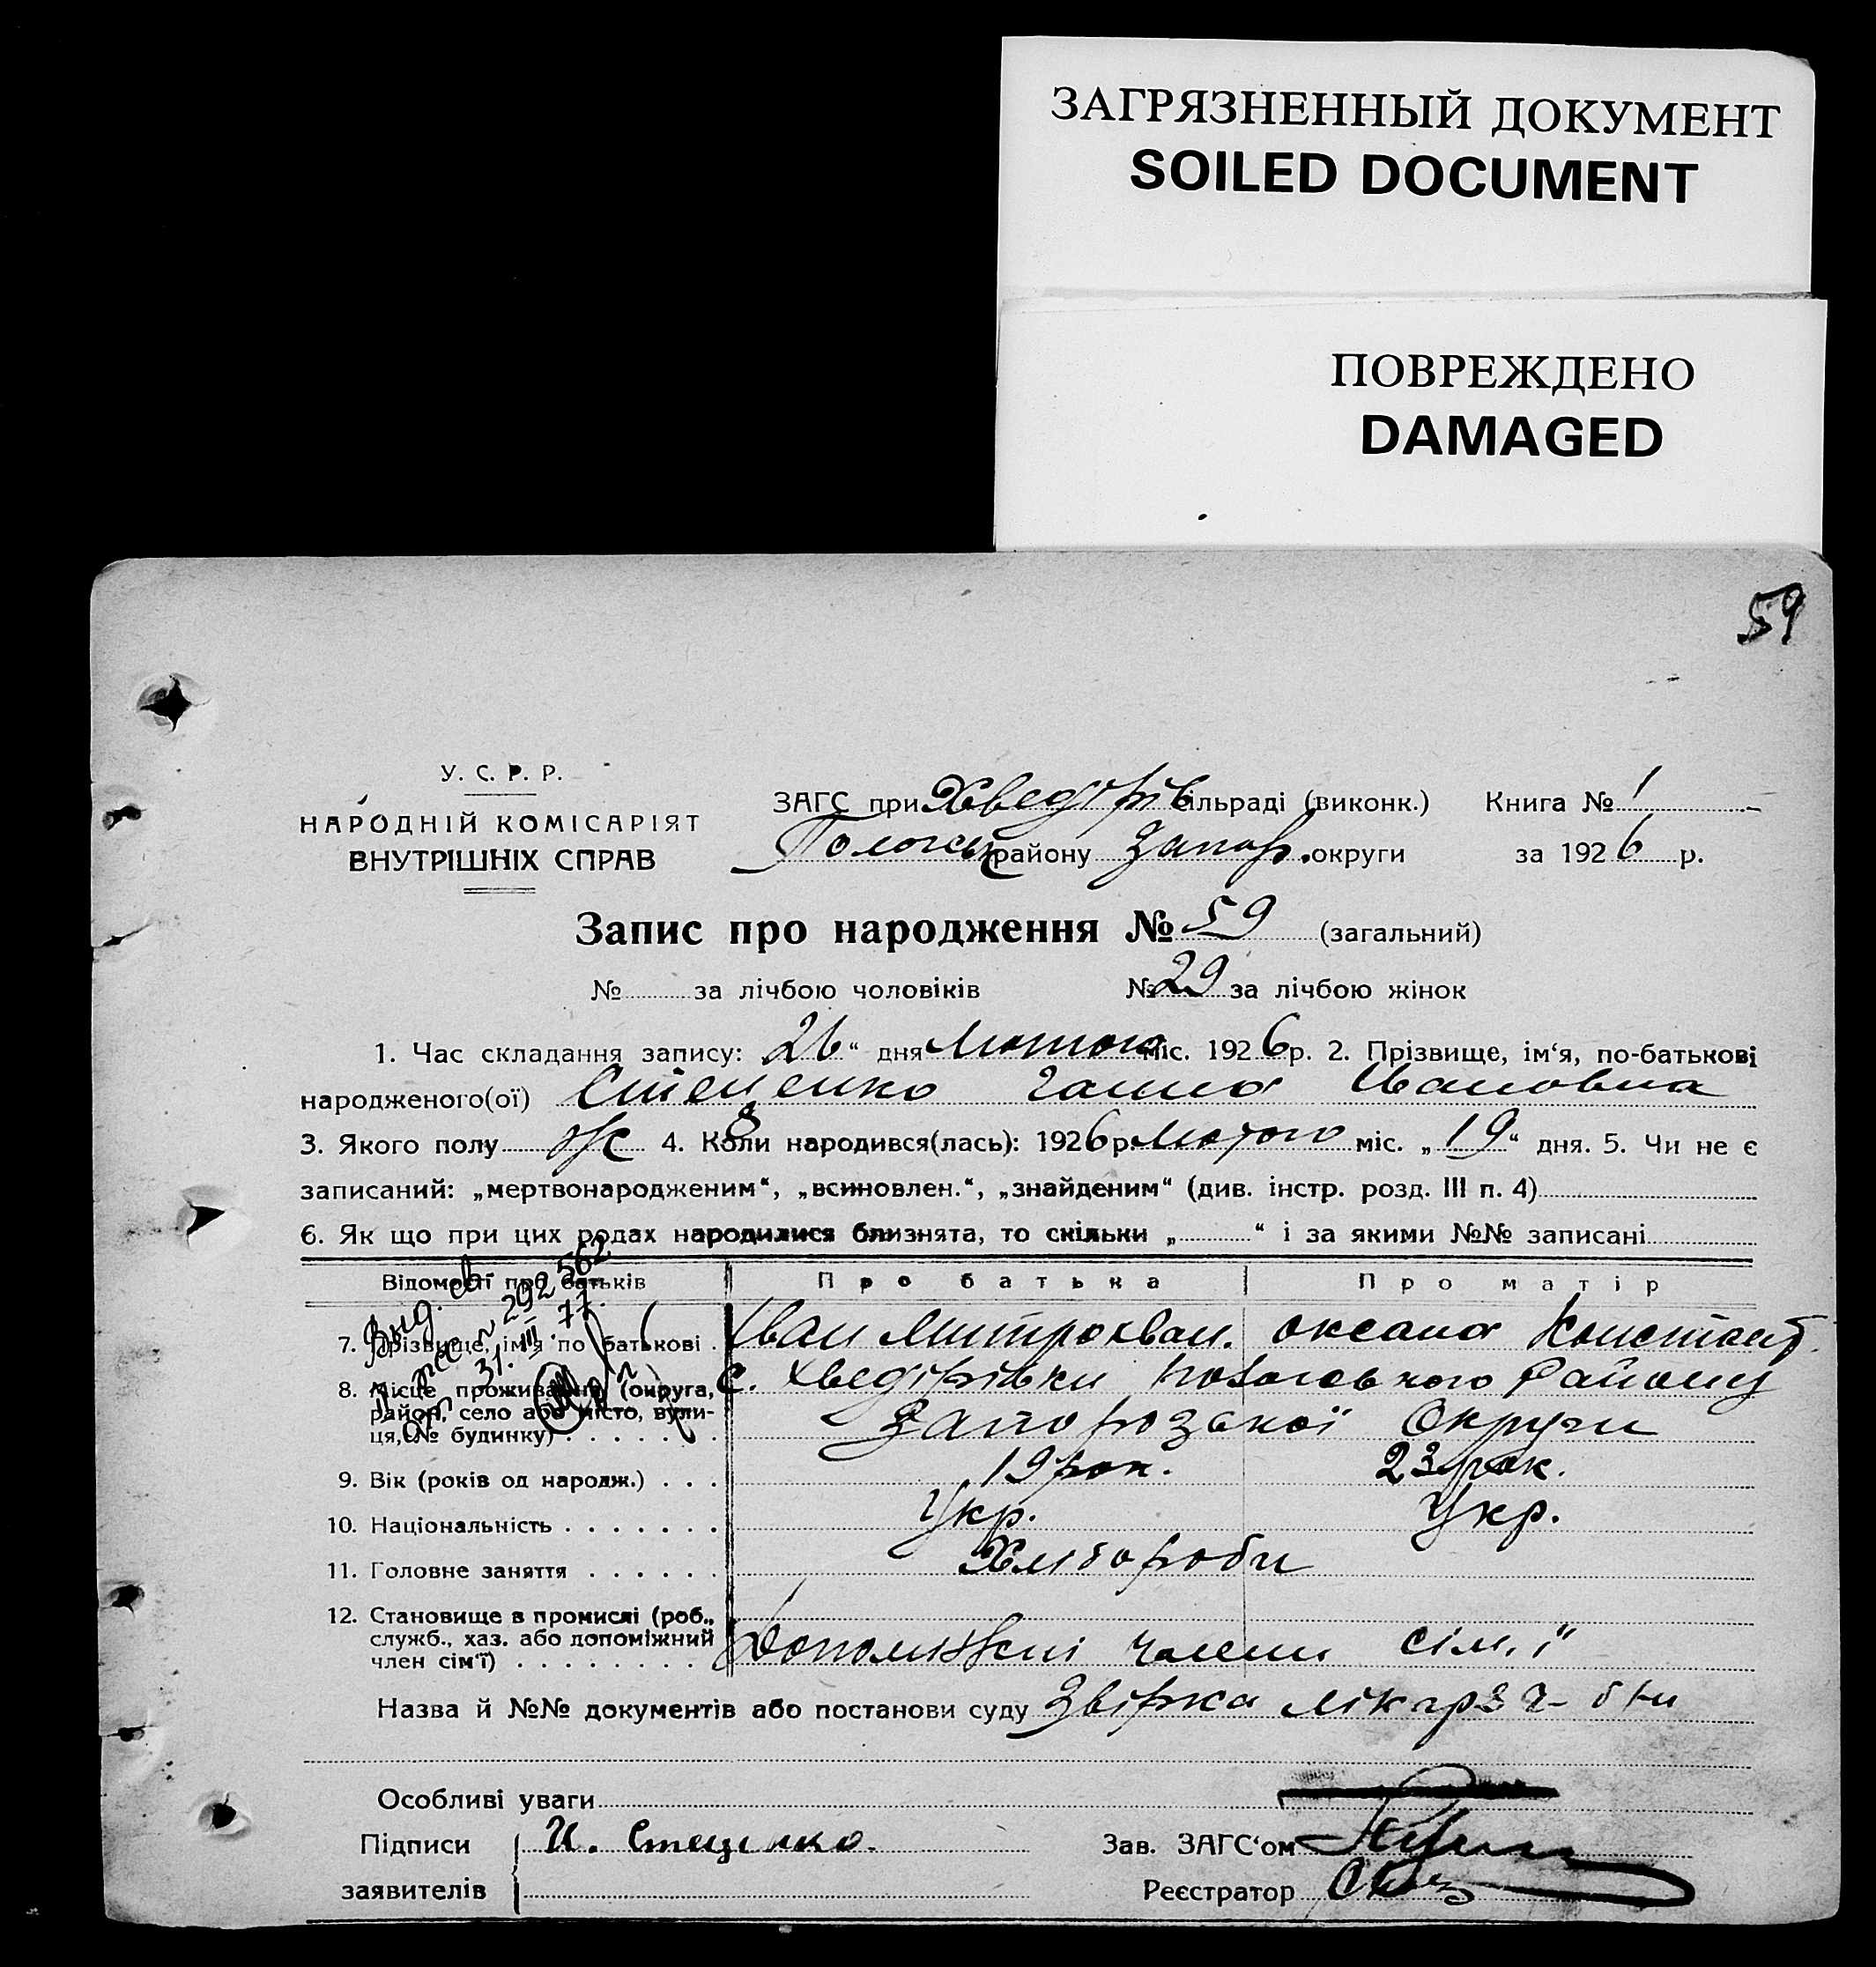 ЗАГРЯЗНЕННЫЙ ДОКУМЕНТ
SOILED DOCUMENT
ПОВРЕЖДЕНО
DAMAGED
59
У. С. Р. Р.
НАРОДНІЙ КОМІСАРІЯТ
ВНУТРІШНІХ СПРАВ
ЗАГС при Хведірів сільраді (виконк.) Книга № 1
Пологськ району Запор. округи за 1926 р.
Запис про народження № 59 (загальний)
№ за лічбою чоловіків № 29 за лічбою жінок
1. Час складання запису: 26 “ дня Лютого міс. 1926 р. 2. Прізвище, ім‘я, по-батькові
народженого(ої) Стеценко Ганна Івановна
3. Якого полу ж 4. Коли народився(лась): 1926 р. Лютого міс. „ 19 “ дня. 5. Чи не є
записаний: „мертвонародженим“, „всиновлен.“, „знайденим“ (див. інстр. розд. III п. 4)
6. Як що при цих родах народилися близнята, то скільки „ “ і за якими №№ записані
Відомості про батьків Про батька Про матір
Выд. св. 292562
31.III.77
7. Прізвище, ім‘я по батькові . Іван Митрохван. Оксана Констант.
8. Місце проживання (округа, с. Хведірівки Пологовського Району
район, село або місто, вули-
ця, № будинку) . . . . . . . Запорозької Округи
9. Вік (років од народж.) . . . 19 рок. 23 рок.
10. Національність . . . . . . . Укр. Укр.
11. Головне заняття . . . . . . Хлібороби
12. Становище в промислі (роб.,
служб., хаз. або допоміжний
член сім‘ї) . . . . . . . . Допоміжні члени сім,ї
Назва й №№ документів або постанови суду Звірка
Особливі уваги
Підписи И. Стеценко. Зав. ЗАГС‘ом
заявителів Реєстратор